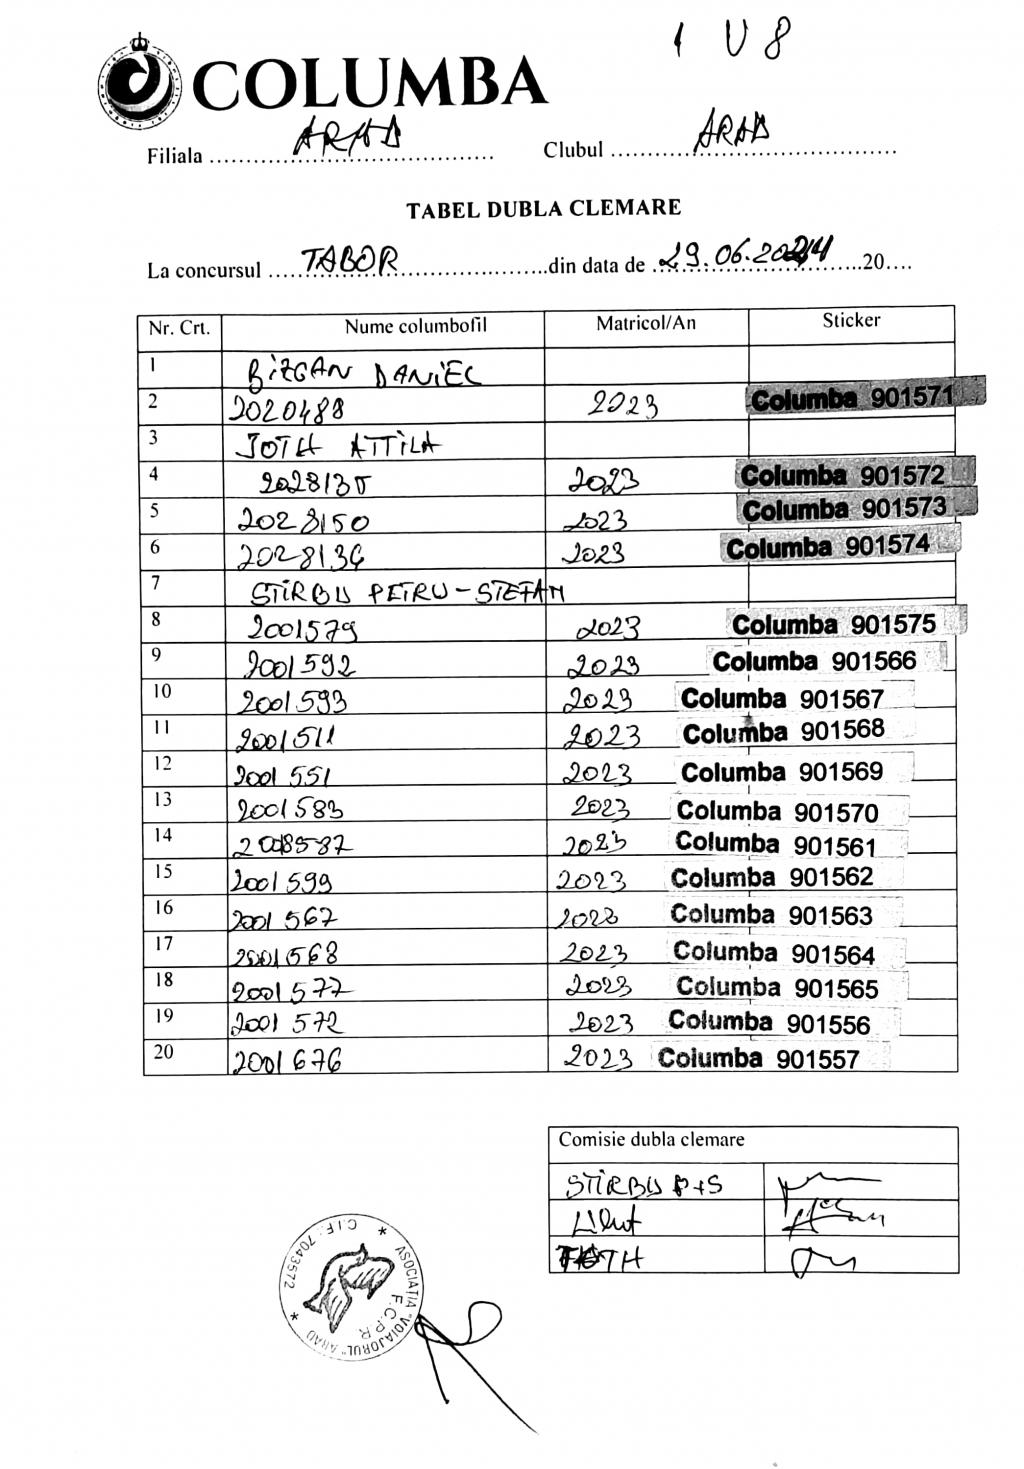 1 V 8
COLUMBA
Filiala ARAD Clubul ARAD
TABEL DUBLA CLEMARE
La concursul TABOR din data de 29.06.2024 20....
Nr. Crt. Nume columbofil Matricol/An Sticker
1 BIZGAN DANIEL
2 2020488 2023 Columba 901571
3 TOTH ATTILA
4 2028130 2023 Columba 901572
5 2028150 2023 Columba 901573
6 2028136 2023 Columba 901574
7 STIRBU PETRU-STEFAN
8 2001579 2023 Columba 901575
9 2001592 2023 Columba 901566
10 2001593 2023 Columba 901567
11 2001511 2023 Columba 901568
12 2001551 2023 Columba 901569
13 2001583 2023 Columba 901570
14 2023 Columba 901561
15 2001599 2023 Columba 901562
16 2001567 2023 Columba 901563
17 2001568 2023 Columba 901564
18 2001577 2023 Columba 901565
19 2001572 2023 Columba 901556
20 2001676 2023 Columba 901557
Comisie dubla clemare
STIRBU P+S
TOTH
ASOCIATIA "VOIAJORUL" ARAD * C.I.F.: 7043572 *
F.C.P.R.